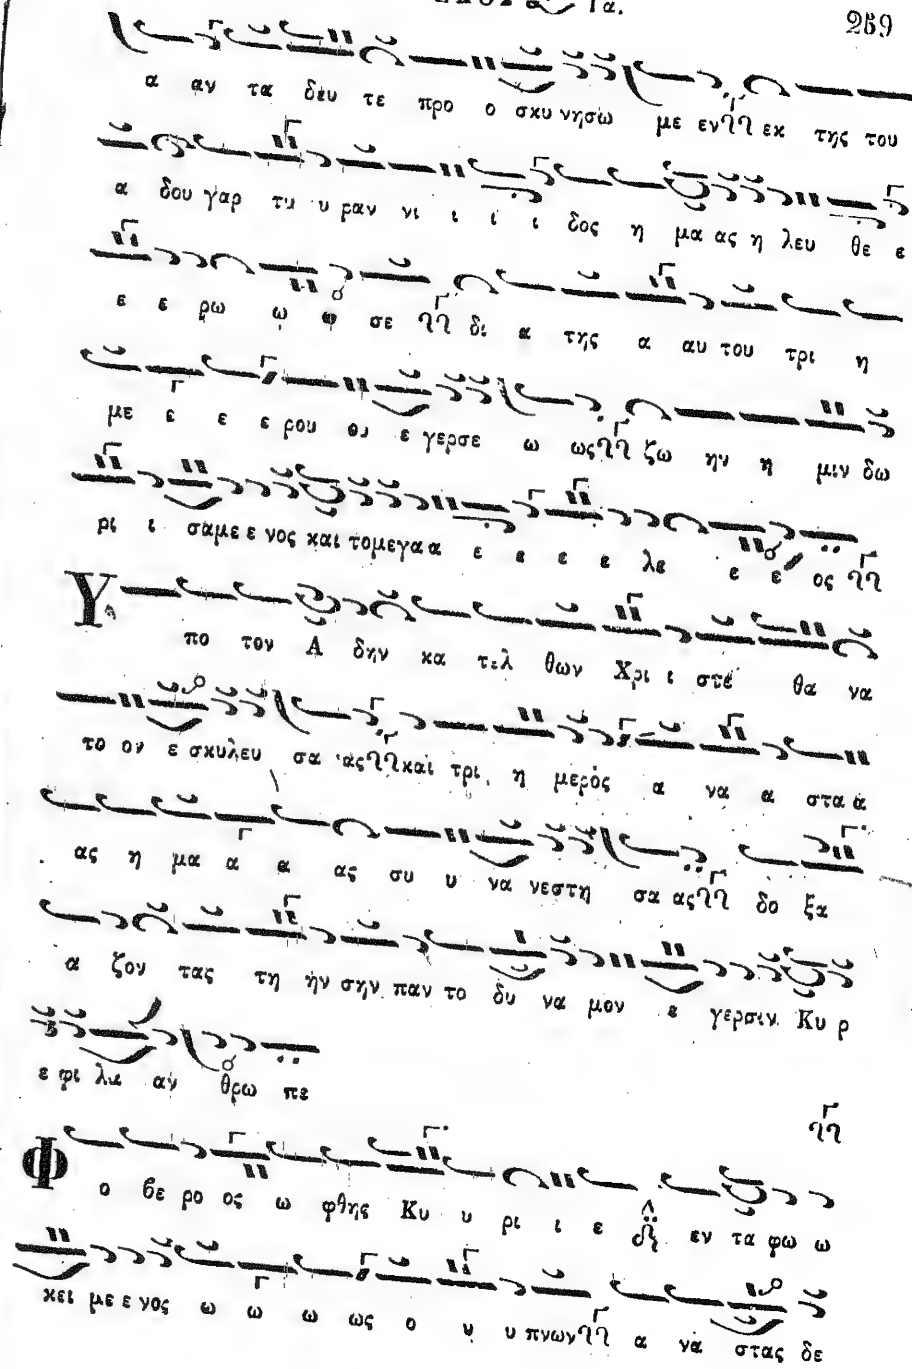 259
α αν τα δευ τε προ ο σκυ νησω με εν εκ της του
α δου γαρ τυ υ ραν νι ι ι ι δος η μα ας η λευ θε ε
ε ε ρω ω ω σε δι α της α αυ του τρι η
με ε ε ε ρου ε γερσε ω ως ζω ην η μιν δω
ρι ι σαμε ε νος και τομεγα α ε ε ε ε λε ε ε ος
Υ πο τον Α δην κα τελ θων Χρι ι στε θα να
το ον ε σκυλευ σα ας και τρι η μερος α να α στα α
ας η μα α α ας συ υ να νεστη σα ας δο ξα
α ζον τας τη ην σην παν το δυ να μον ε γερσιν Κυ ρ
ε φι λα αν θρω πε
Φ ο βε ρο ος ω φθης Κυ υ ρι ι ε εν τα φω ω
κει με ε νος ω ω ω ως ο υ υ πνων α να στας δε